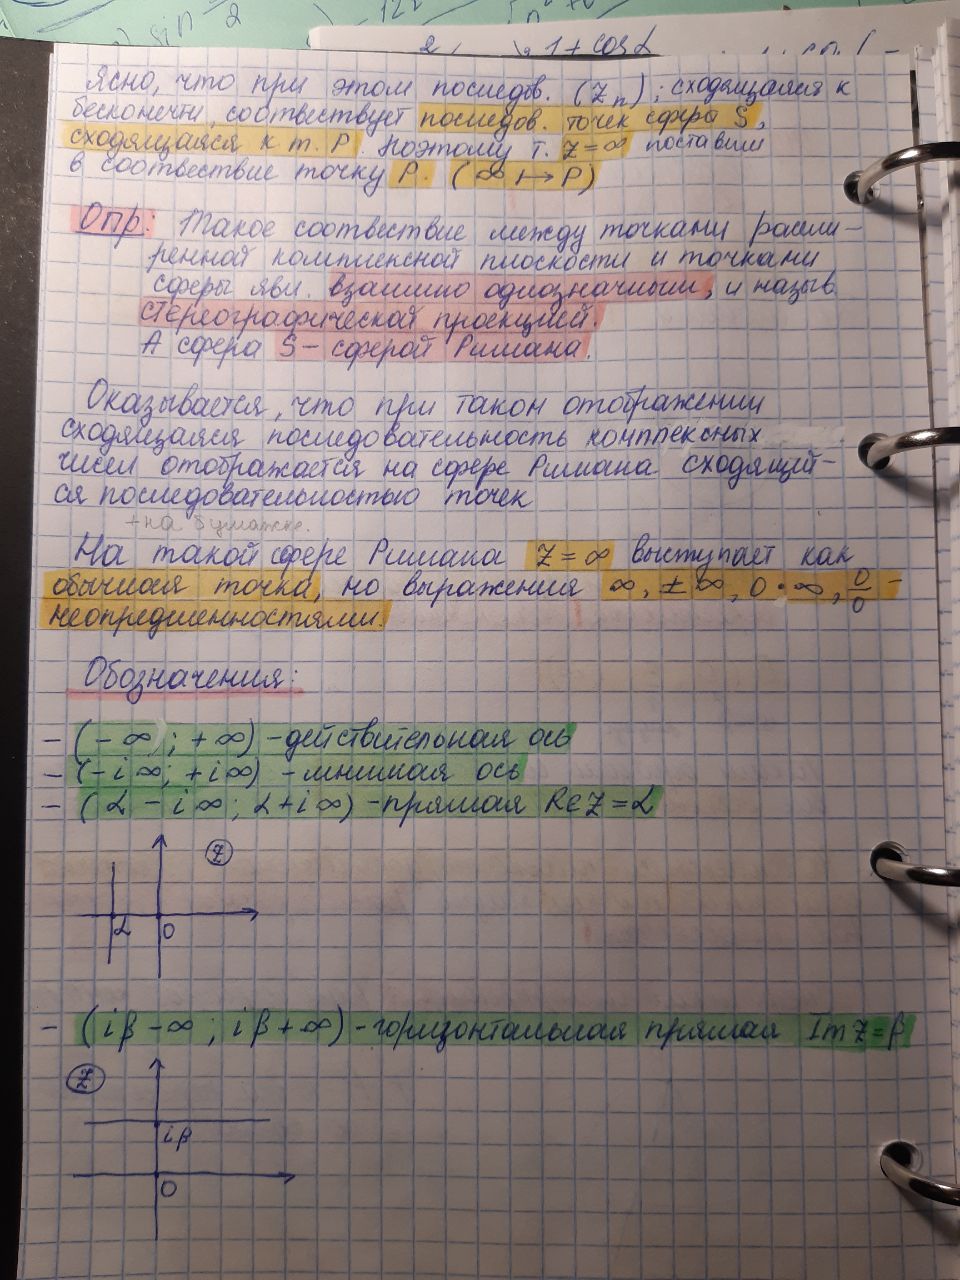 sin² 2
12
n² + 0
2
1 + cos α
Ясно, что при этом последов. (z n); сходящаяся к
бесконечн, соотвествует последов. точек сферы S,
сходящаяся к т. P. Поэтому т. z = ∞ поставим
в соотвествие точку P. (∞ ↦ P)
Опр: Такое соотвествие между точками расши-
ренной комплексной плоскости и точками
сферы явл. взаимно однозначным, и назыв
стереографической проекцией.
А сфера S - сферой Римана.
Оказывается, что при таком отображении
сходящаяся последовательность комплексных
чисел отображается на сфере Римана сходящей-
ся последовательностью точек
+ на бумажке.
На такой сфере Римана z = ∞ выступает как
обычная точка, но выражения ∞, ± ∞, 0 · ∞, 0/0 -
неопределенностями.
Обозначения:
- (- ∞ ; + ∞) - действительная ось
- (- i ∞; + i ∞) - мнимая ось
- (α - i ∞; α + i ∞) - прямая Re z = α
z
α 0
- (i β - ∞ ; i β + ∞) - горизонтальная прямая Im z = β
z
i β
0